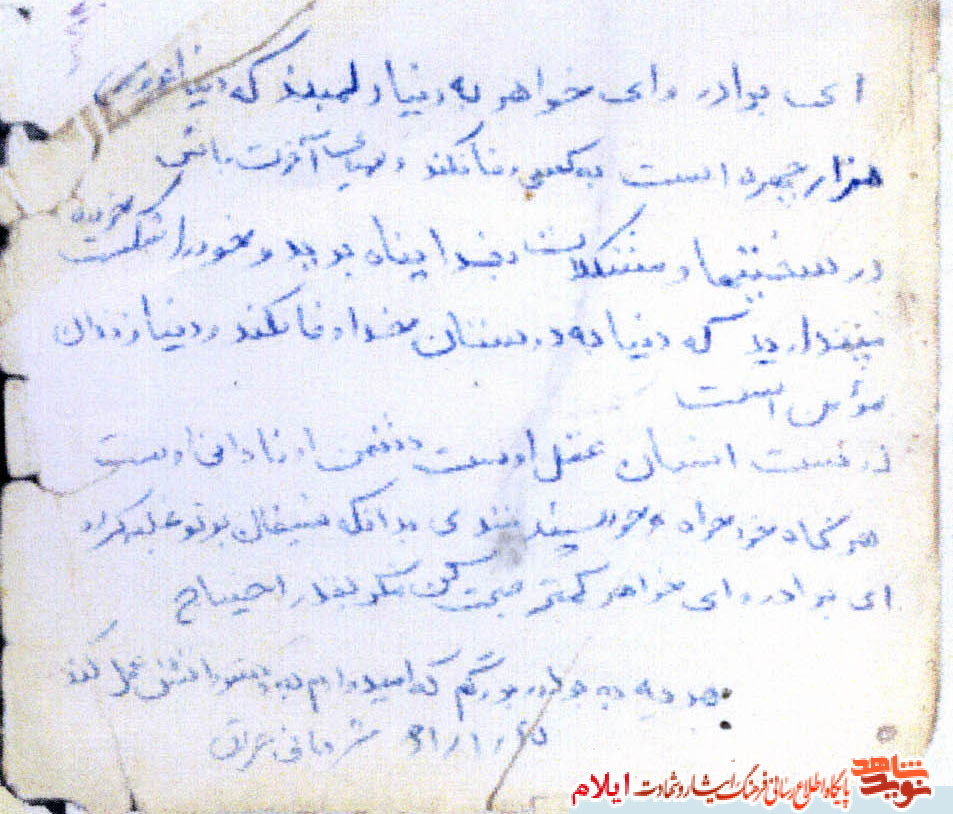 ای برادر و ای خواهر به دنیا دل مبند که دنیا عروس
هزار چهره است به کسی وفا نکند و مهیای آخرت باش
در سختیها و مشکلات بخدا پناه برید و خود را شکست خورده
نپندارید که دنیا به دوستان خدا وفا نکند و دنیا زندان
مؤمن است
دوست انسان عقل اوست دشمن او نادانی اوست
هرگاه خودخواه و خودپسند شدی بدانکه شیطان بر تو غلبه کرده
ای برادر و ای خواهر کمتر صحبت کن مگر بقدر احتیاج
هدیه به برادر بزرگم که امیدوارم به دستوراتش عمل کند
نوید شاهد
پایگاه اطلاع رسانی فرهنگ ایثار و شهادت ایلام